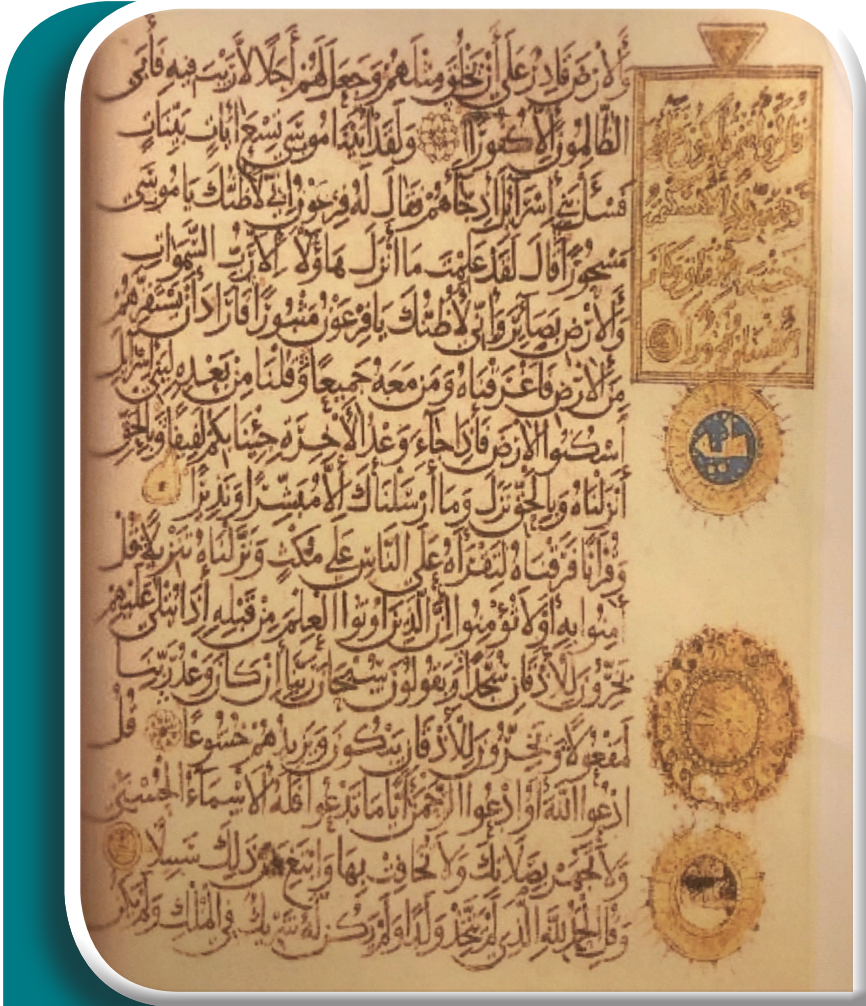 وَالأرض قادر على أن يخلق مثلهم وجعل لهم أجلا لا ريب فيه فأبى
الظالمون إلا كفورا ولقد آتينا موسى تسع آيات بينات
فسئل بني إسرائيل إذ جاءهم فقال له فرعون إني لأظنك يا موسى
مسحورا قال لقد علمت ما أنزل هاؤلاء إلا رب السموات
والأرض بصائر وإني لأظنك يا فرعون مثبورا فأراد أن يستفزهم
من الأرض فأغرقناه ومن معه جميعا وقلنا من بعده لبني إسرائيل
اسكنوا الأرض فإذا جاء وعد الآخرة جئنا بكم لفيفا وبالحق
أنزلناه وبالحق نزل وما أرسلناك إلا مبشرا ونذيرا
وقرآنا فرقناه لتقرأه على الناس على مكث ونزلناه تنزيلا قل
آمنوا به أو لا تؤمنوا إن الذين أوتوا العلم من قبله إذا يتلى عليهم
يخرون للأذقان سجدا ويقولون سبحان ربنا إن كان وعد ربنا
لمفعولا ويخرون للأذقان يبكون ويزيدهم خشوعا قل
ادعوا الله أو ادعوا الرحمن أيا ما تدعوا فله الأسماء الحسنى
ولا تجهر بصلاتك ولا تخافت بها وابتغ بين ذلك سبيلا
وقل الحمد لله الذي لم يتخذ ولدا ولم يكن له شريك في الملك ولم يكن
خشية الإنفاق وكان
الإنسان قتورا